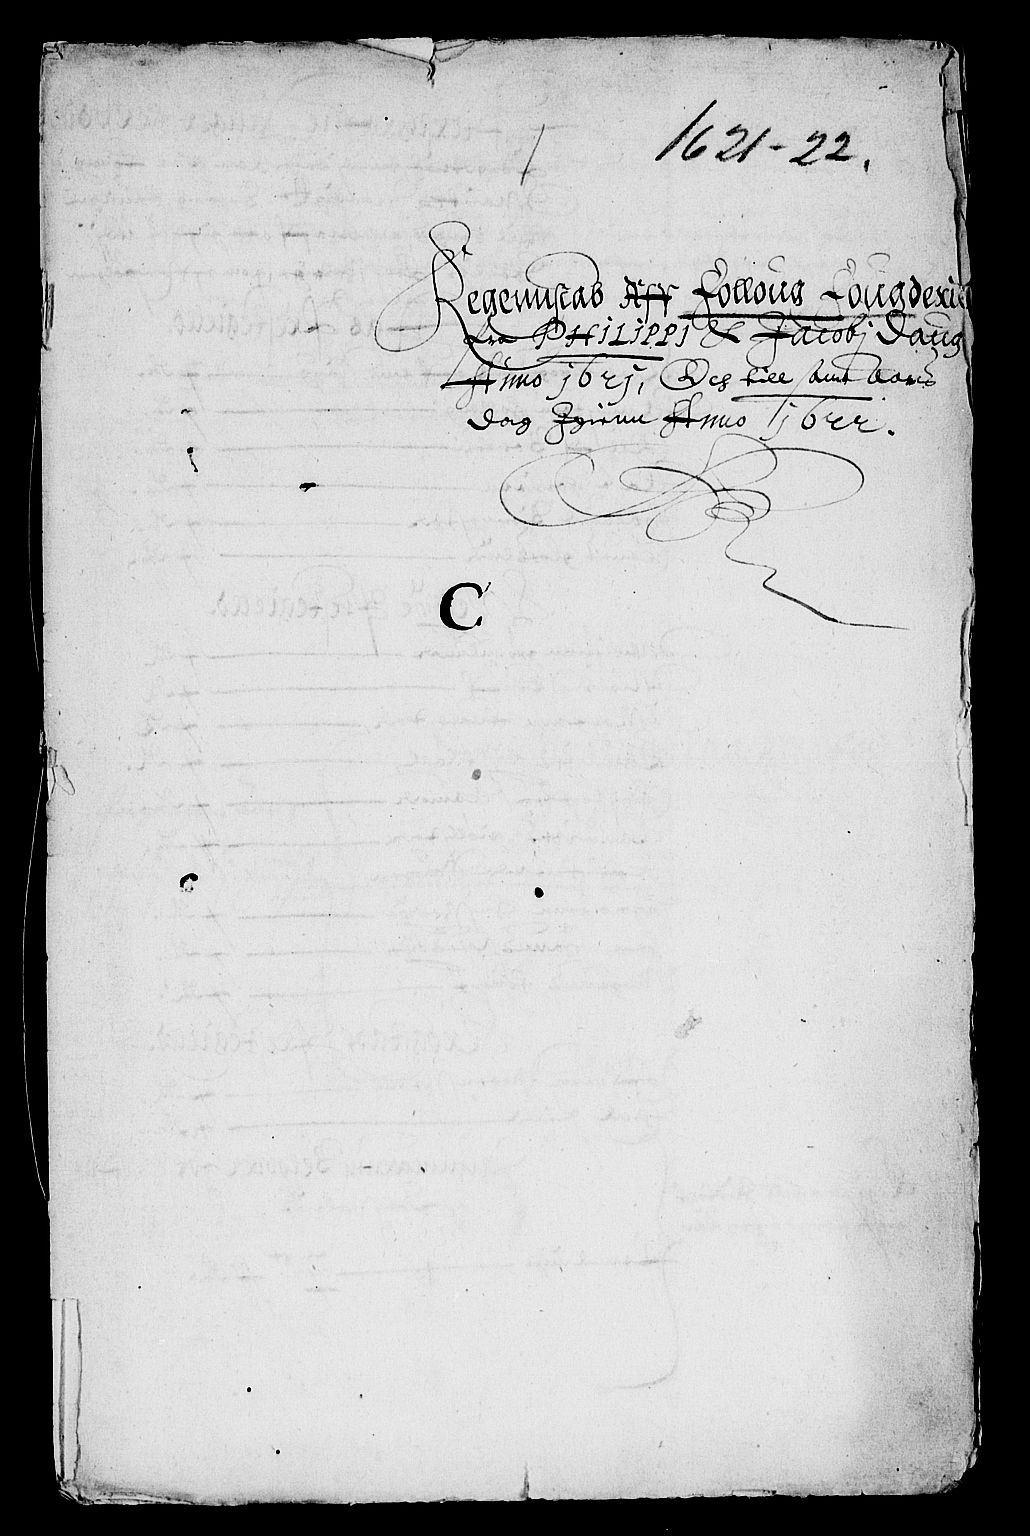 1621-22.
Regennskab Aff Follous Fougderie
fra PHILIPPI & Jacobj Daug
Anno 1621, Och till samt Aars
dag Igienn Anno 1622.
C